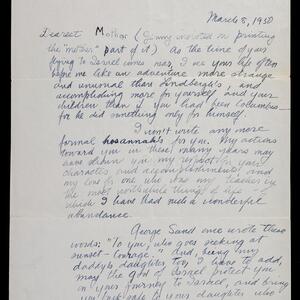 March 8, 1950
Dearest Mother (Ginny insisted on printing
the "mother" part of it) As the time of your
flying to Israel comes near, I see your life often
before me like an adventure more strange
and unusual than Lindbergh's and
accomplishing more for yourself and your
children than if you had been Columbus —
for he did something only for himself.
I won't write any more
formal hosannahs for you. My actions
toward you in these many years may
have shown you my respect for your
character and accomplishments, and
my love for one who has
the most worthwhile things of life —
which I have had such a wonderful
abundance.
George Sand once wrote these
words: "To you who goes seeking at
sunset — Courage."
daddy's daughter too, I have to add,
may the god of Israel protect you
in your journey to Israel, and bring
you back safe to your daughter who